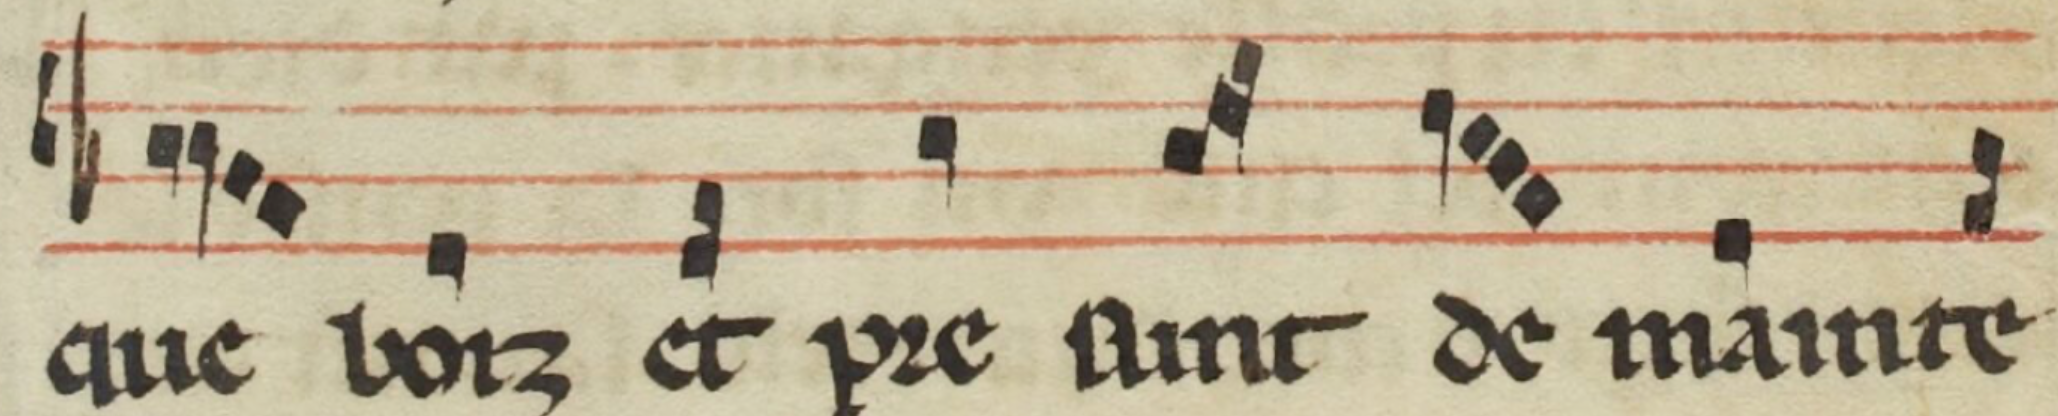 que boiz et pre sunt de mainte